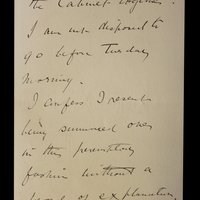 the Cabinet together.
I am not disposed to
go before Tuesday
morning.
I confess I resent
being summoned over
in this peremptory
fashion without a
word of explanation